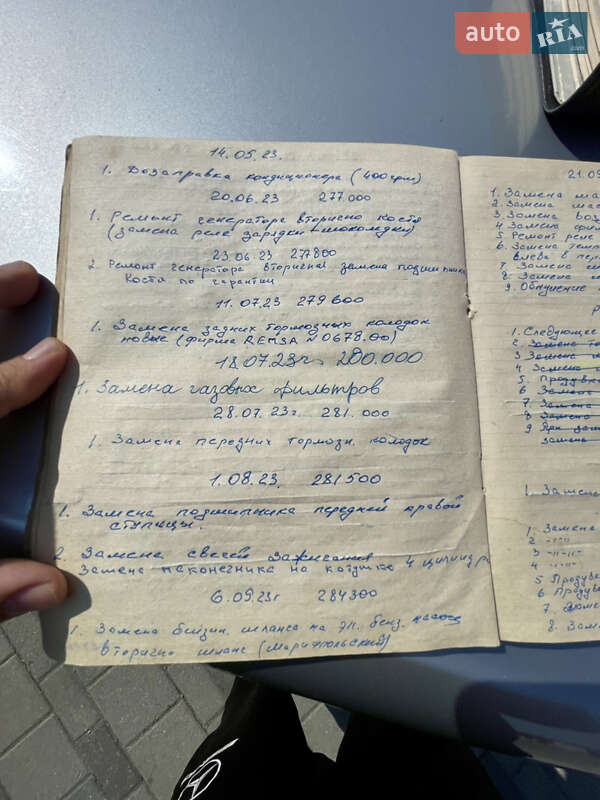 auto RIA .com
14.05.23.
1. Дозаправка кондиционера (400грм)
20.06.23 277.000
1. Ремонт генератора вторично Костя
(замена реле зарядки
23.06.23 277800
2. Ремонт генератора вторичная замена подшипника
Костя по гарантии
11.07.23 279600
1. Замена задних тормозных колодок
новые (фирма REMSA N0678.00)
18.07.23г. 280.000
1. Замена газовых фильтров
28.07.23г. 281.000
1. Замена передних тормозн. колодок
1.08.23. 281500
1. Замена подшипника передней правой
ступицы.
2. Замена свечей зажигания
Замена наконечника на катушке 4 цилиндра
6.09.23г 284300
1. Замена бензин. шланга на эл. бенз. насос
вторично шланг (Мариупольский)
21.09
1. Замена мас
2. Замена мас
3 Замена воз
4 Замена фил
5 Ремонт реле
6. Замена
влева в пер
7 Замена
8 Замена
9. Обнуление
1. Следующее
2. Замена
3 Замена
4 Замена
5. Продувка
6 Замена
7. Замена
8 Замена
9 При зам
замена
1. Замена
1. Замена
2 -"-"
3 -"-"-
4
5 Продувка
6. Продувка
7.
8. Зам